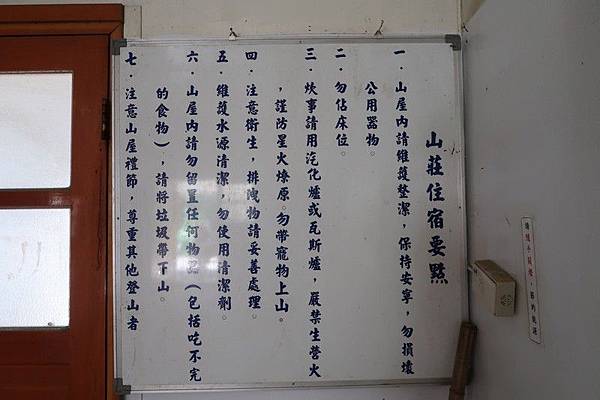 山莊住宿要點
一．山屋內請維護整潔，保持安寧，勿損壞
公用器物。
二．勿佔床位。
三．炊事請用汽化爐或瓦斯爐，嚴禁生營火
，謹防星火燎原。勿帶寵物上山。
四．注意衛生，排洩物請妥善處理。
五．維護水源清潔，勿使用清潔劑。
六．山屋內請勿留置任何物品（包括吃不完
的食物），請將垃圾帶下山。
七．注意山屋禮節，尊重其他登山者